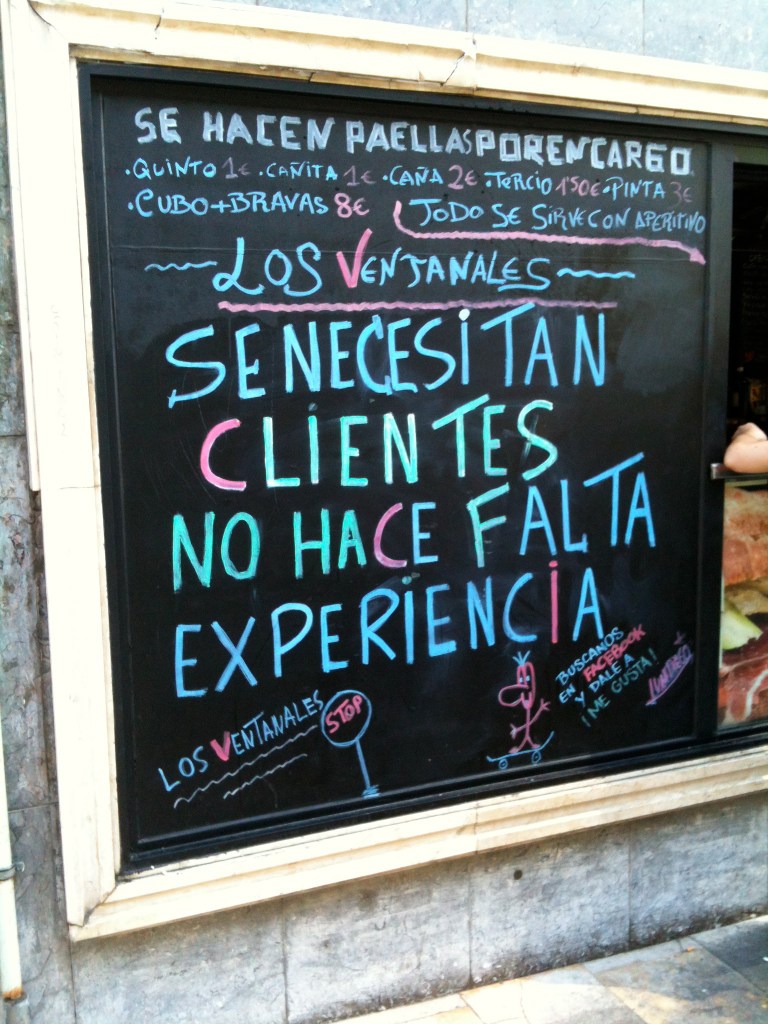 SE HACEN PAELLAS POR ENCARGO
·QUINTO 1€ ·CAÑITA 1€ ·CAÑA 2€ ·TERCIO 1'50€ ·PINTA 3€
·CUBO+BRAVAS 8€ TODO SE SIRVE CON APERITIVO
LOS VENTANALES
SE NECESITAN
CLIENTES
NO HACE FALTA
EXPERIENCIA
LOS VENTANALES
STOP
BUSCANOS
EN FACEBOOK
Y DALE A
¡ME GUSTA!